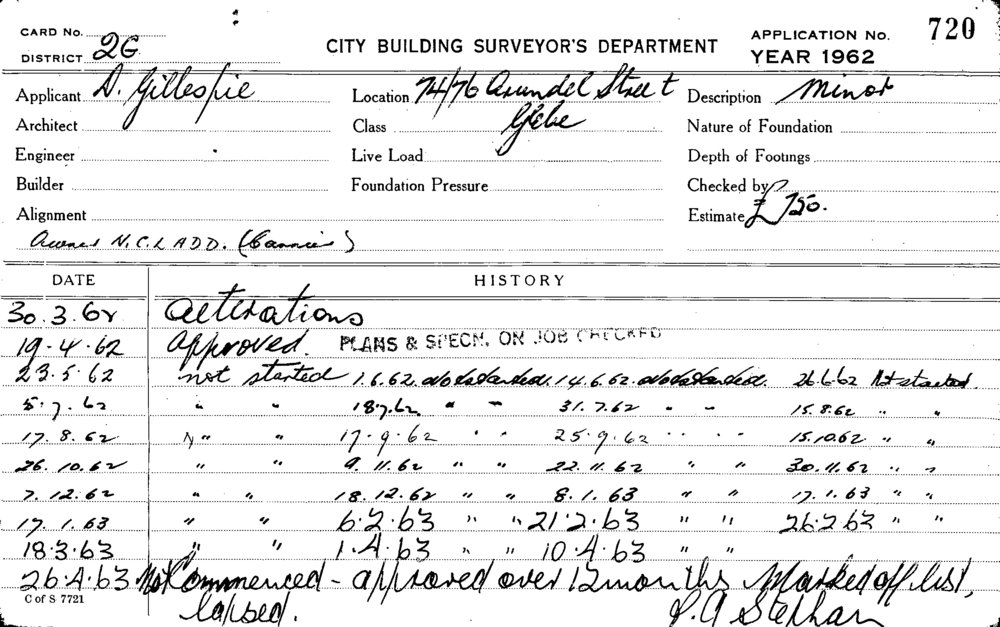 CARD No. 720
DISTRICT 2G CITY BUILDING SURVEYOR'S DEPARTMENT APPLICATION No.
YEAR 1962
Applicant D. Gillespie Location 74/76 Arundel Street Description Minor
Architect Class Glebe Nature of Foundation
Engineer Live Load Depth of Footings
Builder Foundation Pressure Checked by
Alignment Estimate £750.
Owner N.C. LADD.
DATE HISTORY
30.3.62 Alterations
19.4.62 Approved. PLANS & SPECN. ON JOB CHECKED
23.5.62 not started 1.6.62. Not started. 14.6.62. Not started. 26.6.62 Not started
5.7.62 " " 18.7.62 " " 31.7.62 " " 15.8.62 " "
17.8.62 " " 17.9.62 " " 25.9.62 " " 15.10.62 " "
26.10.62 " " 9.11.62 " " 22.11.62 " " 30.11.62 " "
7.12.62 " " 18.12.62 " " 8.1.63 " " 17.1.63 " "
17.1.63 " " 6.2.63 " " 21.2.63 " " 26.2.63 " "
18.3.63 " " 1.4.63 " " 10.4.63 " "
26.4.63 Not Commenced - approved over 12 months Marked off list,
C of S 7721 lapsed.